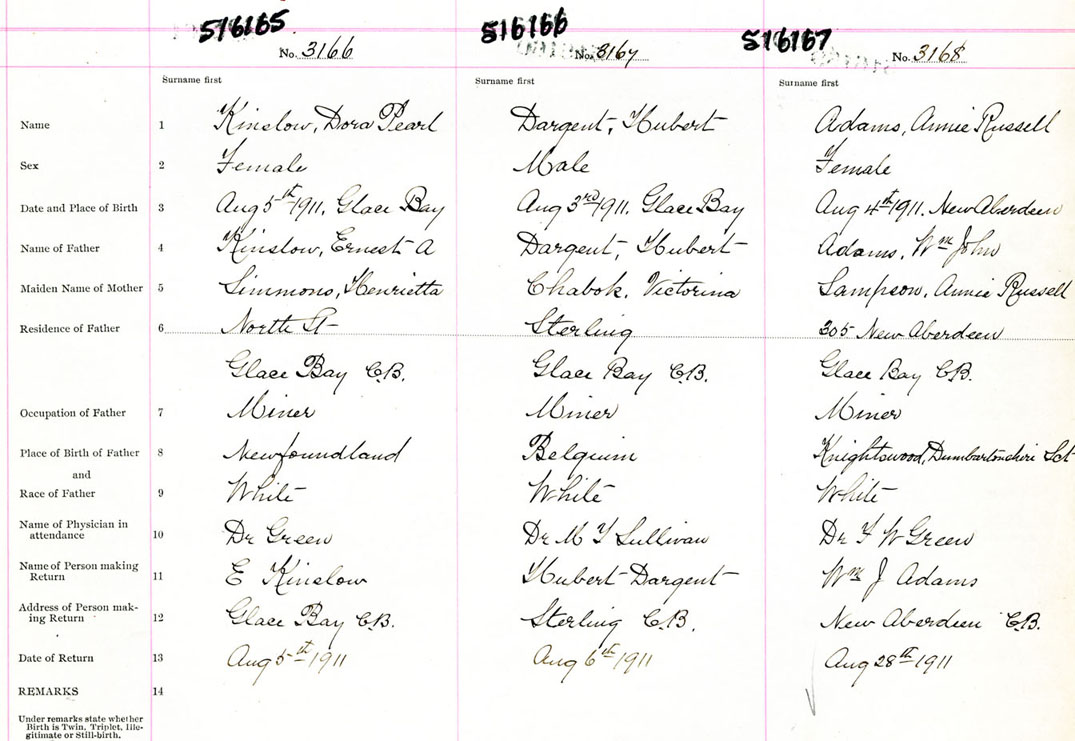 516165 516166 516167
No. 3166 No. 3167 No. 3168
Surname first Surname first Surname first
Name 1 Kinslow, Dora Pearl Dargent, Hubert Adams, Annie Russell
Sex 2 Female Male Female
Date and Place of Birth 3 Aug 5th 1911, Glace Bay Aug 3rd 1911. Glace Bay Aug 4th 1911. New Aberdeen
Name of Father 4 Kinslow, Ernest A Dargent, Hubert Adams, Wm John
Maiden Name of Mother 5 Simmons, Henrietta Chabok, Victorina Sampson, Annie Russell
Residence of Father 6 North St Sterling 305 New Aberdeen
Glace Bay C.B. Glace Bay C.B. Glace Bay C.B.
Occupation of Father 7 Miner Miner Miner
Place of Birth of Father 8 Newfoundland Belgium Knightswood, Dumbartonshire Sct
and
Race of Father 9 White White White
Name of Physician in
attendance 10 Dr Green Dr M T Sullivan Dr F W Green
Name of Person making
Return 11 E Kinslow Hubert Dargent Wm J Adams
Address of Person mak-
ing Return 12 Glace Bay C.B. Sterling C.B. New Aberdeen C.B.
Date of Return 13 Aug 5th 1911 Aug 6th 1911 Aug 28th 1911
REMARKS 14
Under remarks state whether
Birth is Twin, Triplet, Ille-
gitimate or Still-birth.